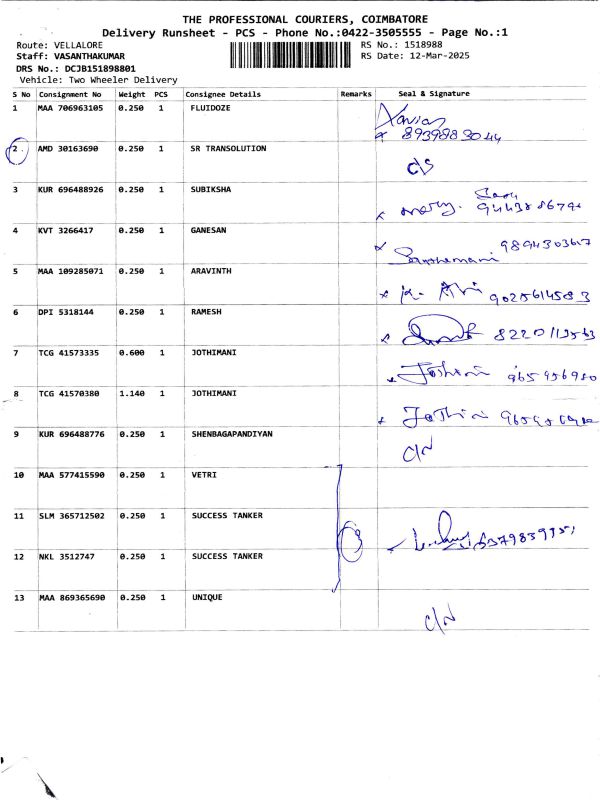 THE PROFESSIONAL COURIERS, COIMBATORE
Delivery Runsheet - PCS - Phone No.:0422-3505555 - Page No.:1
Route: VELLALORE RS No.: 1518988
Staff: VASANTHAKUMAR RS Date: 12-Mar-2025
DRS No.: DCJB151898801
Vehicle: Two Wheeler Delivery
S No Consignment No Weight PCS Consignee Details Remarks Seal & Signature
1 MAA 706963105 0.250 1 FLUIDOZE
8939883044
2 AMD 30163690 0.250 1 SR TRANSOLUTION
3 KUR 696488926 0.250 1 SUBIKSHA
4 KVT 3266417 0.250 1 GANESAN
9894303617
5 MAA 109285071 0.250 1 ARAVINTH
9025614583
6 DPI 5318144 0.250 1 RAMESH
8220113563
7 TCG 41573335 0.600 1 JOTHIMANI
8 TCG 41570380 1.140 1 JOTHIMANI
9 KUR 696488776 0.250 1 SHENBAGAPANDIYAN
C/N
10 MAA 577415590 0.250 1 VETRI
11 SLM 365712502 0.250 1 SUCCESS TANKER
3
12 NKL 3512747 0.250 1 SUCCESS TANKER
13 MAA 869365690 0.250 1 UNIQUE
C/N